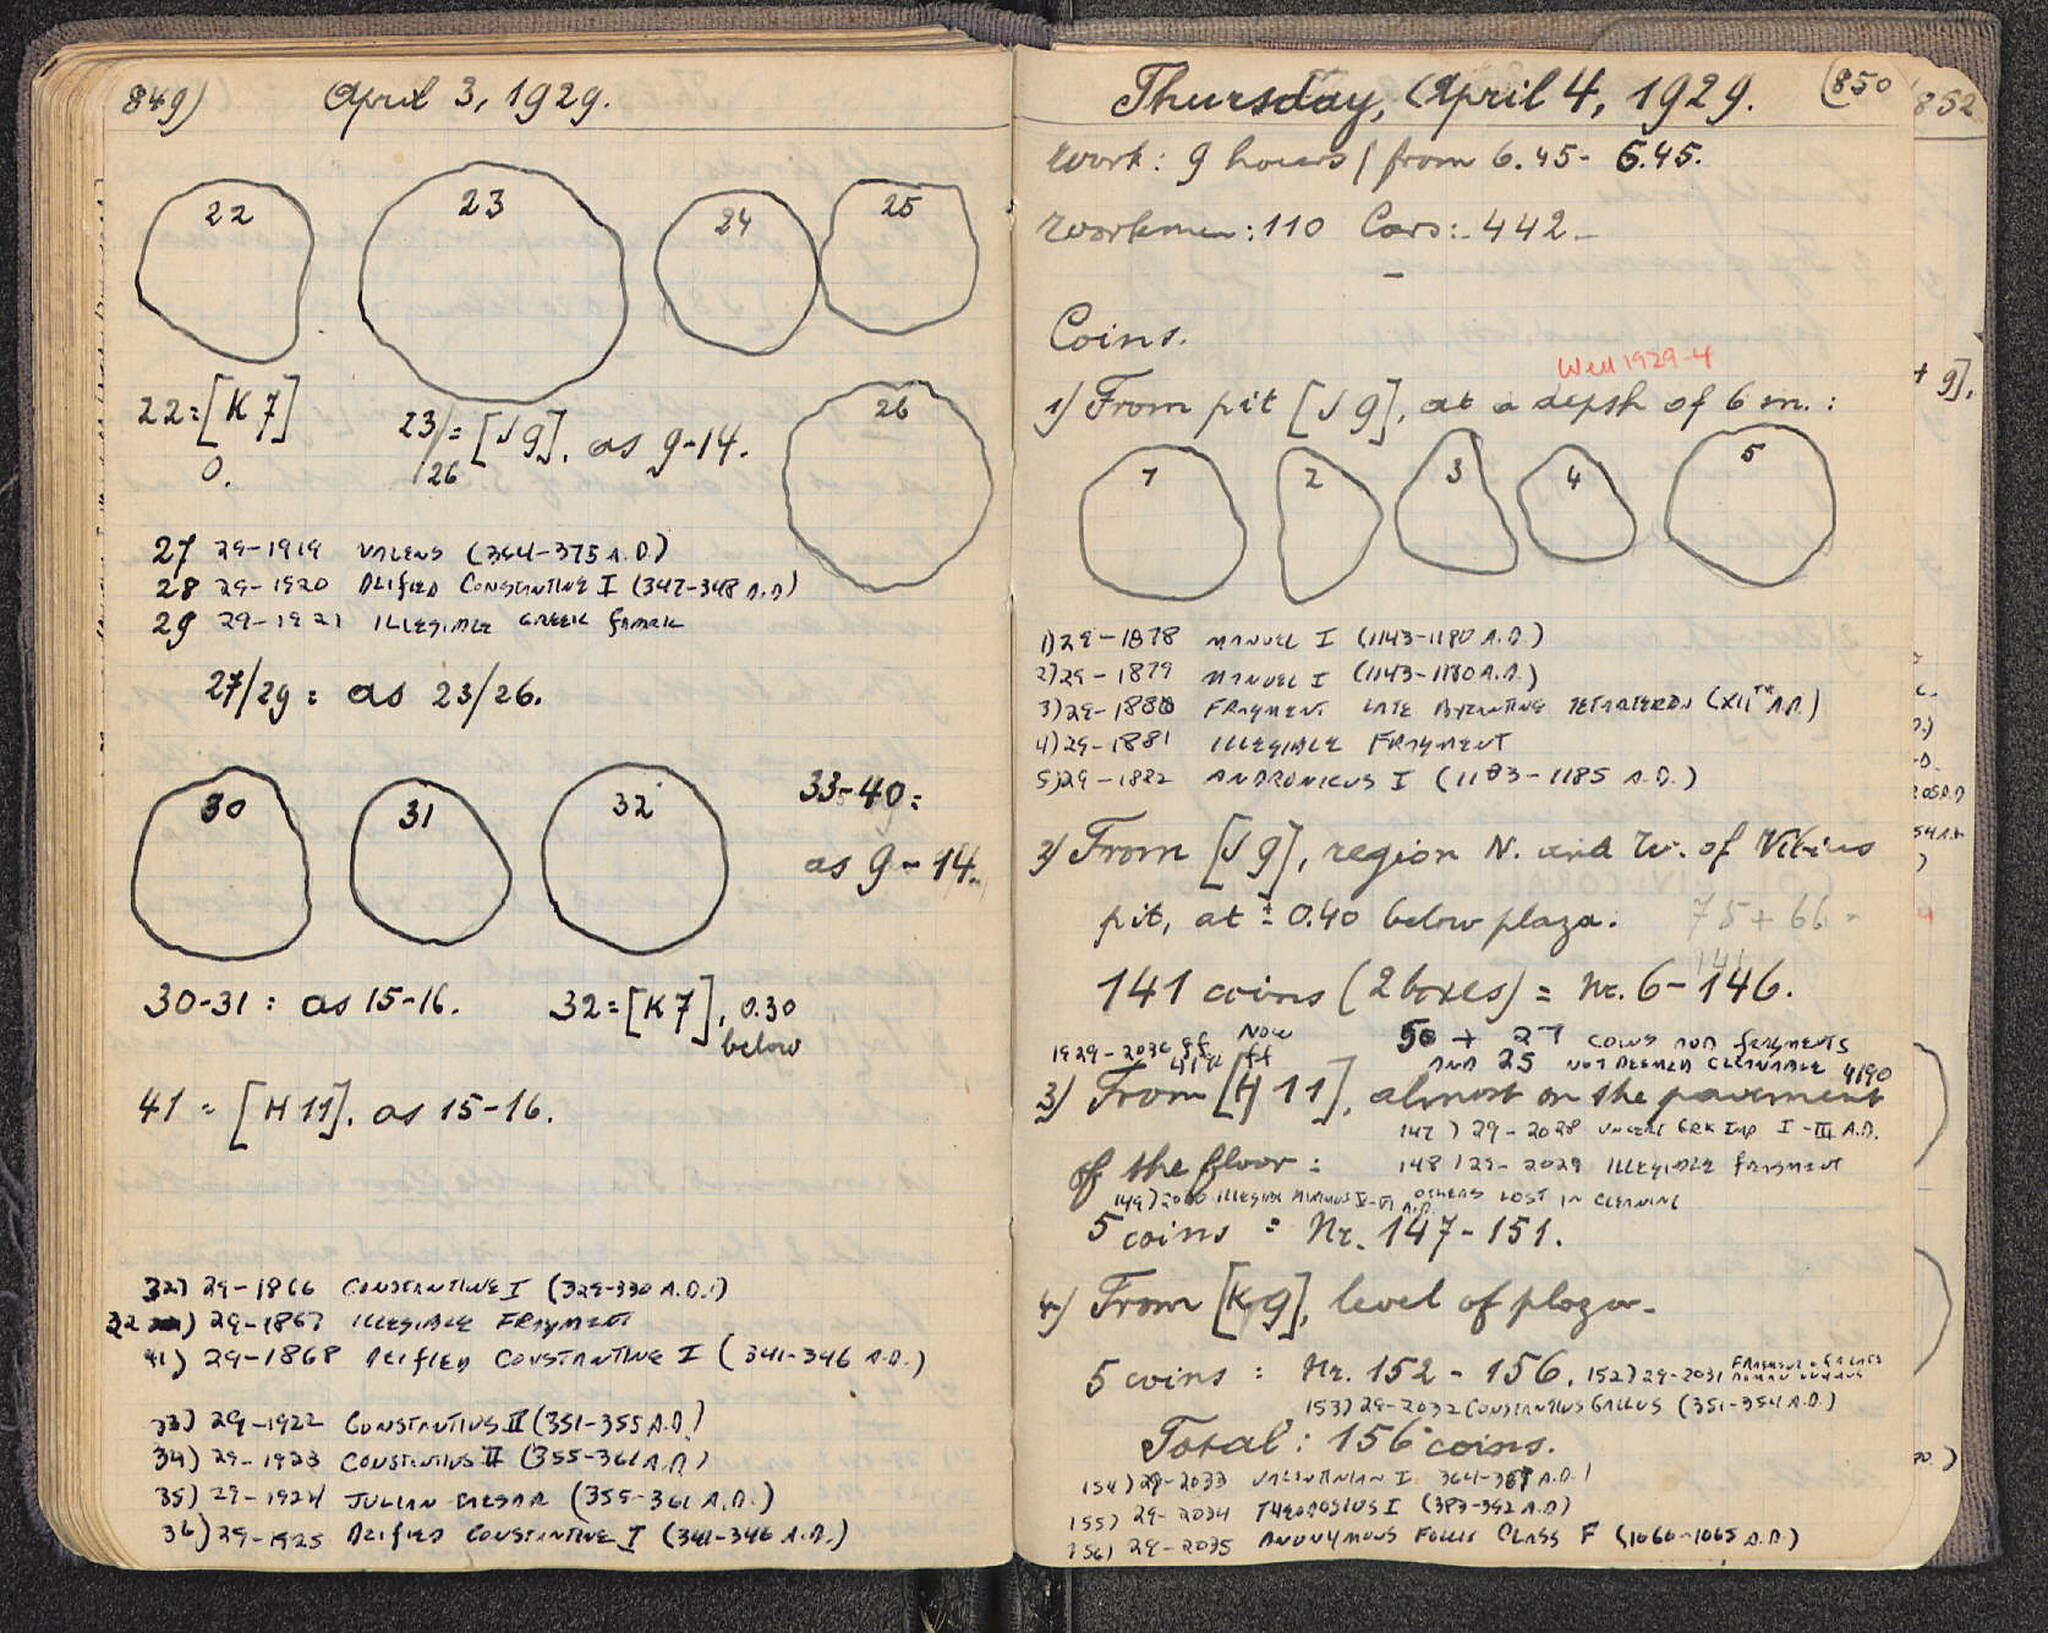 849)
April 3, 1929.
22
23
24
25
22=[K 7]
0.
23/26 = [J 9], as 9-14.
26
27 29-1919 VALENS (364-375 A.D.)
28 29-1920 DEIFIED CONSTANTINE I (347-348 A.D)
29 29-1921 ILLEGIBLE GREEK
27/29 = as 23/26.
30
31
32
33-40=
as 9-14.
30-31: as 15-16.
32=[K7], 0.30
below
41 = [H 11], as 15-16.
32) 29-1866 CONSTANTINE I (329-330 A.D.)
32 ) 29-1867 ILLEGIBLE FRAGMENT
41) 29-1868 DEIFIED CONSTANTINE I (341-346 A.D.)
33) 29-1922 CONSTANTIUS II (351-355 A.D.)
34) 29-1923 CONSTANTIUS II (355-361 A.D.)
35) 29-1924 JULIAN CAESAR (355-361 A.D.)
36) 29-1925 DEIFIED CONSTANTINE I (341-346 A.D.)
Thursday, April 4, 1929.
(850
852
Work: 9 hours / from 6.45- 5.45.
Workmen: 110 Cars: 442
Coins.
Well 1929-4
1) From pit [J 9], at a depth of 6 m. :
+ 9],
1
2
3
4
5
1) 29-1878 MANUEL I (1143-1180 A.D.)
2) 29-1879 MANUEL I (1143-1180 A.D.)
3) 29-1880 FRAGMENT LATE BYZANTINE TETARTERON (XIITH A.D.)
4) 29-1881 ILLEGIBLE FRAGMENT
5) 29-1882 ANDRONICUS I (1183-1185 A.D.)
2) From [J 9], region N. and W. of Vibius
pit, at ± 0.40 below plaza.
75 + 66 =
141
141 coins (2 boxes) = Nr. 6-146.
1929-2036 ff NOW
ff
50 + 27 COINS AND FRAGMENTS
AND 25 NOT DEEMED CLEANABLE 4190
3) From [H 11], almost on the pavement
147) 29-2028 UNCERT GRK IMP I-III A.D.
of the floor :
148) 29-2029 ILLEGIBLE FRAGMENT
149) 2030 ILLEGIBLE MINIMUS V-VI A.D. OTHERS LOST IN CLEANING
5 coins = Nr. 147-151.
4) From [K 9], level of plaza.
5 coins : Nr. 152 - 156. 152) 29-2031
153) 29-2032 CONSTANTIUS GALLUS (351-354 A.D.)
Total: 156 coins.
154) 29-2033 VALENTINIAN I 364-367 A.D.)
155) 29-2034 THEODOSIUS I (383-392 A.D)
156) 29-2035 ANONYMOUS FOLLIS CLASS F (1060-1065 A.D.)